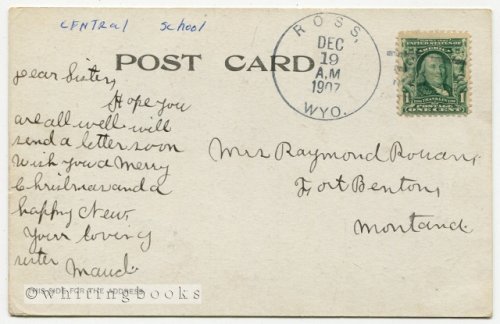 CENTRAL SCHOOL
POST CARD
ROSS,
DEC
19
A.M
1907
WYO.
UNITED STATES OF AMERICA
FRANKLIN
POSTAGE
1 ONE CENT 1
Dear Sister,
Hope you
are all well will
send a letter soon
Wish you a Merry
Christmas and a
happy New,
Your loving
sister
Maud.
Mrs Raymond
Fort Benton,
Montana.
THIS SIDE FOR THE ADDRESS
©whitingbooks